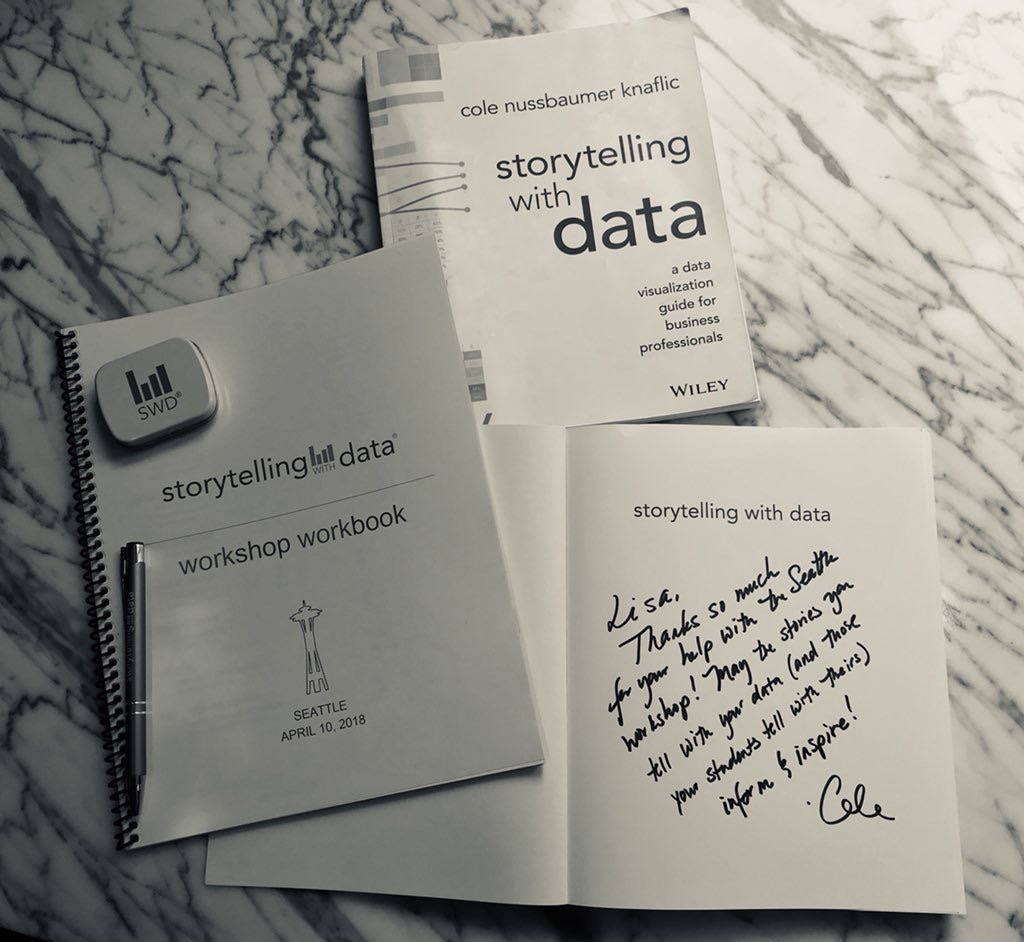 cole nussbaumer knaflic
storytelling
with
data
a data
visualization
guide for
business
professionals
WILEY
SWD®
storytelling WITH data®
workshop workbook
SEATTLE
APRIL 10, 2018
storytelling with data
Lisa,
Thanks so much
for your help with the Seattle
workshop! May the stories you
tell with your data (and those
your students tell with theirs)
inform & inspire!
Cole